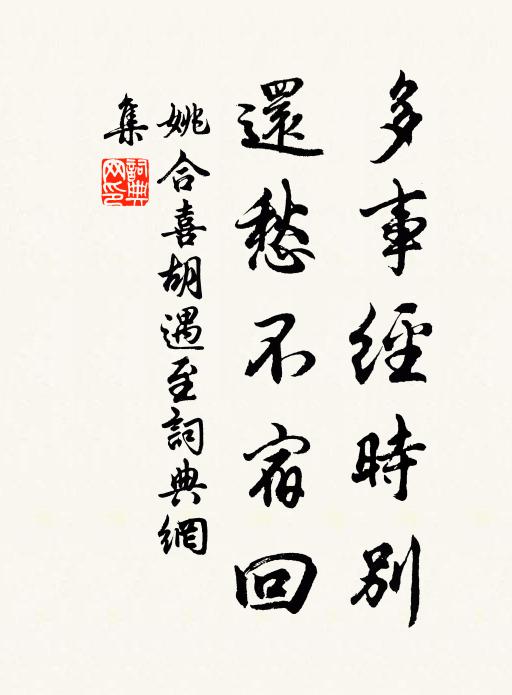 多事經時別
還愁不宿回
姚合喜胡遇至詞典網
集
詞典网印